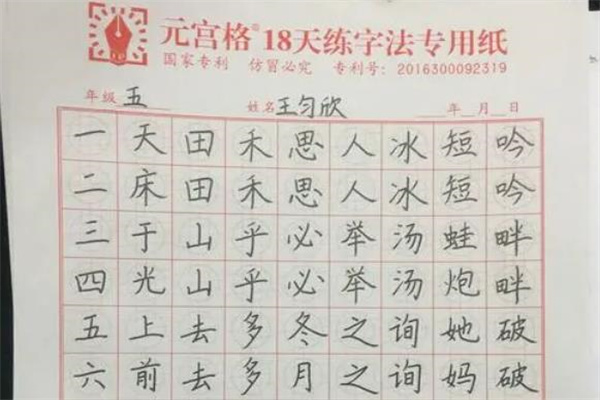 元宫格 18天练字法专用纸
国家专利 仿冒必究 专利号：2016300092319
年级 五 姓名 王匀欣 年 月 日
一 天 田 禾 思 人 冰 短 吟
二 床 田 禾 思 人 冰 短 吟
三 于 山 乎 必 举 汤 蛙 畔
四 光 山 乎 必 举 汤 炮 畔
五 上 去 多 冬 之 询 她 破
六 前 去 多 月 之 询 妈 破